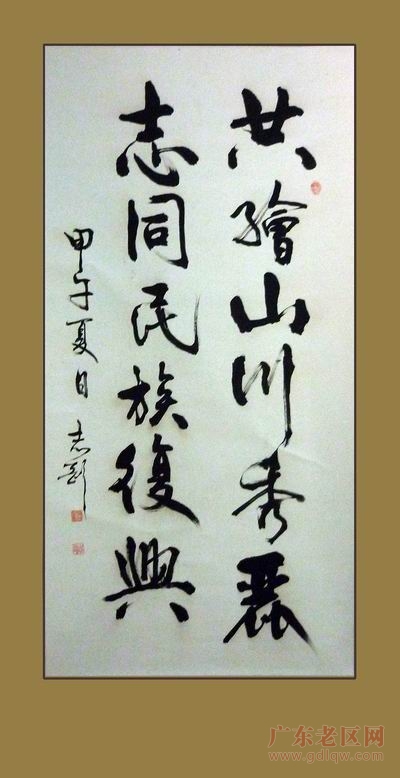 共繪山川秀麗
志同民族復興
甲午夏日 志
广东老区网
www.gdlqw.com